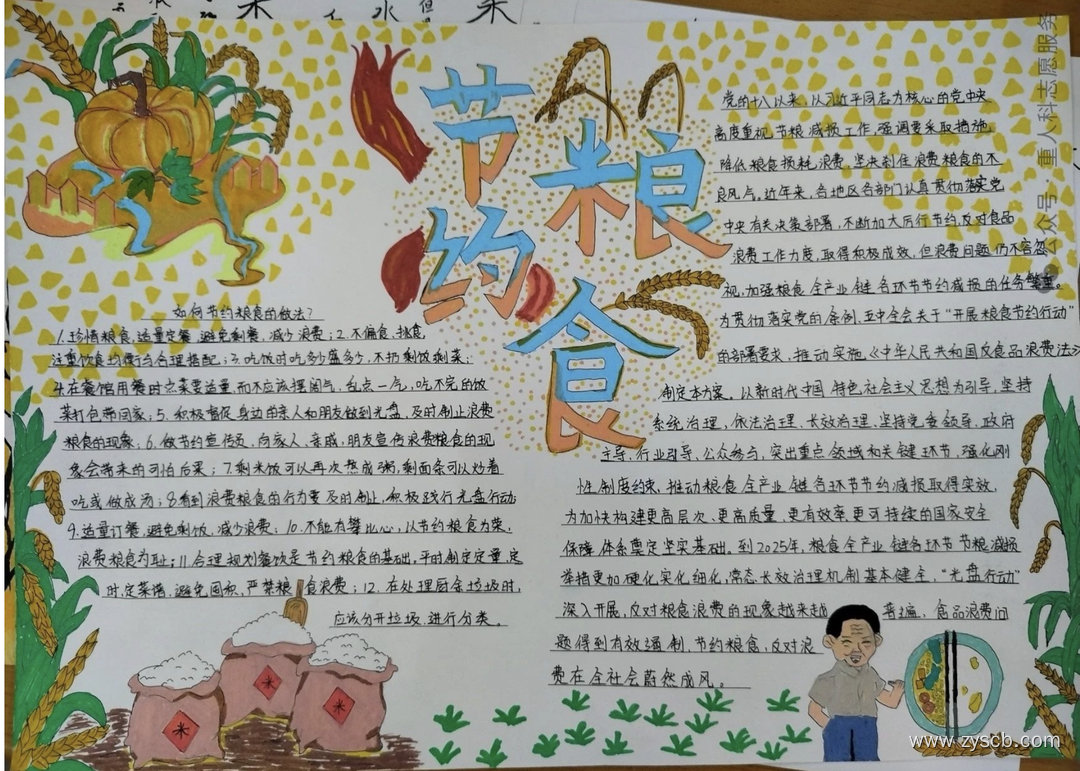 节约粮食
如何节约粮食的做法?
1.珍惜粮食,适量定餐,避免剩餐,减少浪费;2.不偏食,挑食,
注重饮食均衡与合理搭配;3.吃饭时吃多少盛多少,不扔剩饭剩菜;
4.在餐馆用餐时点菜要适量,而不应该摆阔气,乱点一气,吃不完的饭
菜打包带回家;5.积极督促身边的亲人和朋友做到光盘,及时制止浪费
粮食的现象;6.做节约宣传员,向家人、亲戚,朋友宣传浪费粮食的现
象会带来的可怕后果;7.剩米饭可以再次熬成粥,剩面条可以炒着
吃或做成汤;8.看到浪费粮食的行为要及时制止,积极践行光盘行动;
9.适量订餐,避免剩饭,减少浪费;10.不能有攀比心,以节约粮食为荣,
浪费粮食为耻;11.合理规划餐饮是节约粮食的基础,平时制定定量,定
时,定菜谱,避免囤积,严禁粮食浪费;12.在处理厨余垃圾时,
应该分开垃圾,进行分类。
党的十八以来,从习近平同志为核心的党中央
高度重视节粮减损工作,强调要采取措施,
降低粮食损耗浪费,坚决刹住浪费粮食的不
良风气,近年来,各地区各部门认真贯彻落实党
中央有关决策部署,不断加大厉行节约,反对食品
浪费工作力度,取得积极成效,但浪费问题仍不容忽
视,加强粮食全产业链各环节节约减损的任务繁重。
为贯彻落实党的条例,五中全会关于“开展粮食节约行动”
的部署要求,推动实施《中华人民共和国反食品浪费法》
制定本方案。以新时代中国特色社会主义思想为引导,坚持
系统治理,依法治理,长效治理,坚持党委领导,政府
主导,行业引导,公众参与,突出重点领域和关键环节,强化刚
性制度约束,推动粮食全产业链各环节节约减损取得实效,
为加快构建更高层次、更高质量、更有效率,更可持续的国家安全
保障体系奠定坚实基础,到2025年,粮食全产业链各环节节粮减损
举措更加硬化实化细化,常态长效治理机制基本健全,“光盘行动”
深入开展,反对粮食浪费的现象越来越普遍,食品浪费问
题得到有效遏制,节约粮食,反对浪
费在全社会蔚然成风。
米
米
米
公众号 重人科志愿服务
www.zyscb.com